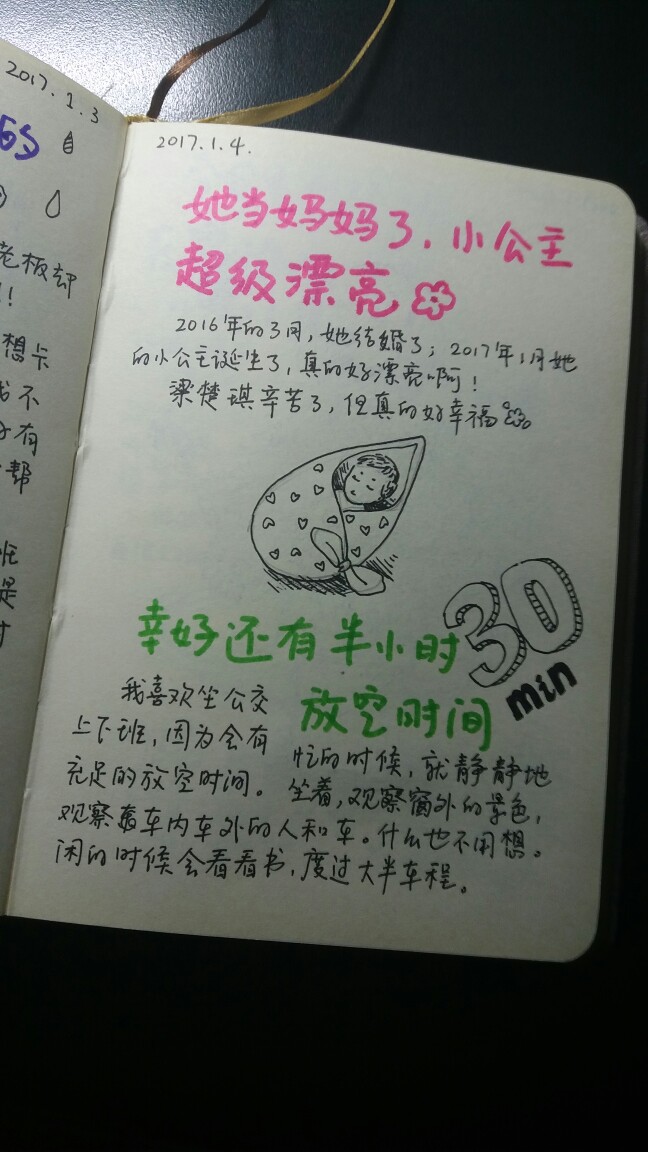 2017.1.3
的
老板却
!!
想卡
我不
子有
帮
班
是
时
2017.1.4.
她当妈妈了，小公主
超级漂亮
2016年的3月，她结婚了；2017年1月她
的小公主诞生了，真的好漂亮啊！
梁楚琪辛苦了，但真的好幸福
幸好还有半小时
30
min
放空时间
我喜欢坐公交
上下班，因为会有
充足的放空时间。
忙的时候，就静静地
坐着，观察窗外的景色，
观察车内车外的人和车。什么也不用想。
闲的时候会看看书，度过大半车程。